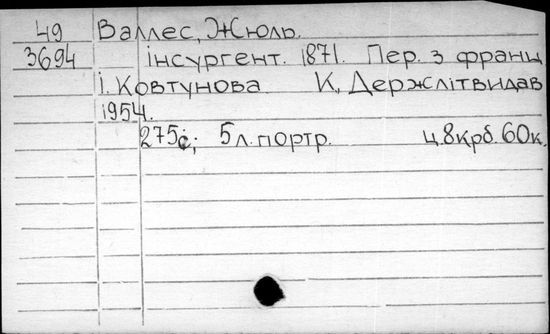 49 Валлес, Жюль.
3694 інсургент. 1871. Пер. з франц
І. Ковтунова К, Держлітвидав
1954.
275с; 5л. портр. ц. 8крб. 60к.